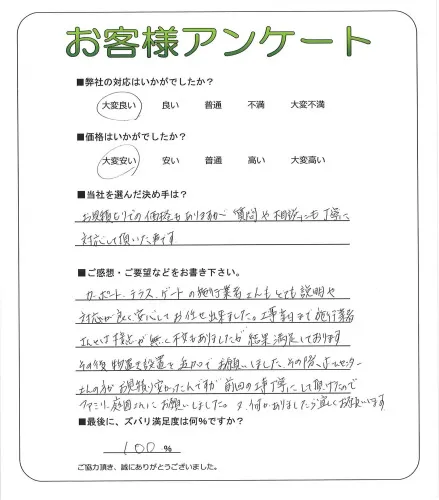 お客様アンケート
■弊社の対応はいかがでしたか?
大変良い 良い 普通 不満 大変不満
■価格はいかがでしたか?
大変安い 安い 普通 高い 大変高い
■当社を選んだ決め手は?
お見積もりでの価格もありますが 質問や相談にも丁寧に
対応して頂いた事です
■ご感想・ご要望などをお書き下さい。
カーポート、テラス、ゲートの施行業者さんもとても説明や
対応が良く安心してお任せ出来ました。工事当日まで施行業者
さんとは接点が無く不安もありましたが 結果満足しております
その後 物置き設置を追加で お願いしました。その際、ホームセンター
さんの方がお見積り安かったんですが 前回の工事丁寧にして頂けたので
ファミリー庭園さんにお願いしました。又、何かありましたら宜しくお願いします
■最後に、ズバリ満足度は何%ですか?
100 %
ご協力頂き、誠にありがとうございました。